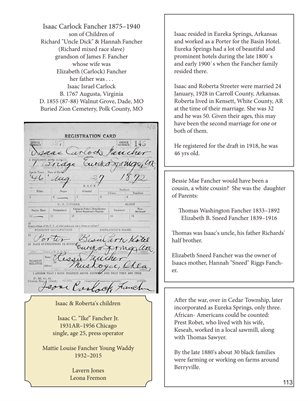 Isaac Carlock Fancher 1875–1940
son of Children of
Richard "Uncle Dick" & Hannah Fancher
(Richard mixed race slave)
grandson of James F. Fancher
whose wife was
Elizabeth (Carlock) Fancher
her father was . . .
Isaac Israel Carlock
B. 1767 Augusta, Virginia
D. 1855 (87-88) Walnut Grove, Dade, MO
Buried Zion Cemetery, Polk County, MO
REGISTRATION CARD
145
Isaac Carlock Fancher
Eureka Springs Ark
46 Aug 27 1872
Porter Basin Park Hotel
Eureka Springs Ark
Bessie Fancher
Muskogee, Okla
Isaac Carlock Fancher
Isaac & Roberta's children
Isaac C. "Ike" Fancher Jr.
1931AR–1956 Chicago
single, age 25, press operator
Mattie Louise Fancher Young Waddy
1932–2015
Lavern Jones
Leona Freemon
Isaac resided in Eureka Springs, Arkansas
and worked as a Porter for the Basin Hotel.
Eureka Springs had a lot of beautiful and
prominent hotels during the late 1800`s
and early 1900`s when the Fancher family
resided there.
Isaac and Roberta Streeter were married 24
January, 1928 in Carroll County, Arkansas.
Roberta lived in Kensett, White County, AR
at the time of their marriage. She was 32
and he was 50. Given their ages, this may
have been the second marriage for one or
both of them.
He registered for the draft in 1918, he was
46 yrs old.
Bessie Mae Fancher would have been a
cousin, a white cousin? She was the daughter
of Parents:
Thomas Washington Fancher 1833–1892
Elizabeth B. Sneed Fancher 1839–1916
Thomas was Isaac's uncle, his father Richards'
half brother.
Elizabeth Sneed Fancher was the owner of
Isaacs mother, Hannah "Sneed" Riggs Fanch-
er.
After the war, over in Cedar Township, later
incorporated as Eureka Springs, only three
African- Americans could be counted:
Prest Robet, who lived with his wife,
Keseah, worked in a local sawmill, along
with Thomas Sawyer.
By the late 1880's about 30 black families
were farming or working on farms around
Berryville.
113